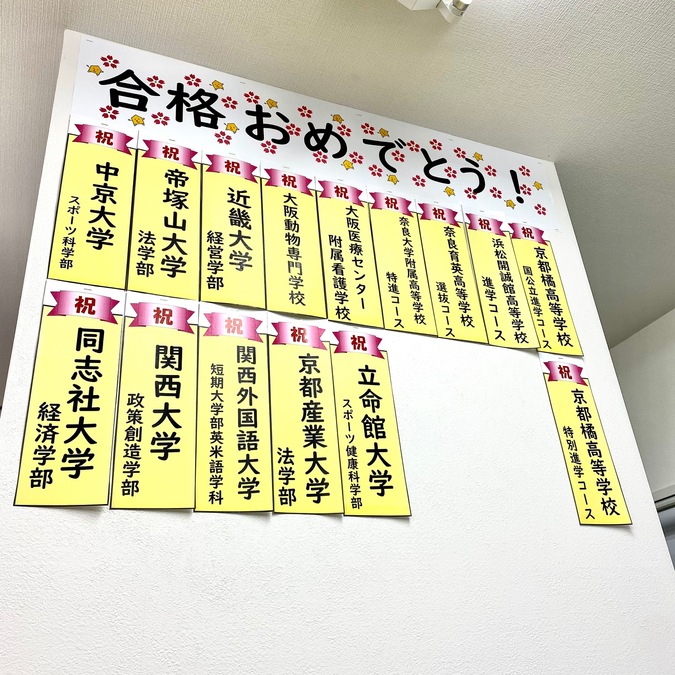 合格おめでとう！
祝
中京大学
スポーツ科学部
祝
帝塚山大学
法学部
祝
近畿大学
経営学部
祝
大阪動物専門学校
祝
大阪医療センター
附属看護学校
祝
奈良大学附属高等学校
特進コース
祝
奈良育英高等学校
選抜コース
祝
浜松開誠館高等学校
進学コース
祝
京都橘高等学校
国公立進学コース
祝
同志社大学
経済学部
祝
関西大学
政策創造学部
祝
関西外国語大学
短期大学部英米語学科
祝
京都産業大学
法学部
祝
立命館大学
スポーツ健康科学部
祝
京都橘高等学校
特別進学コース